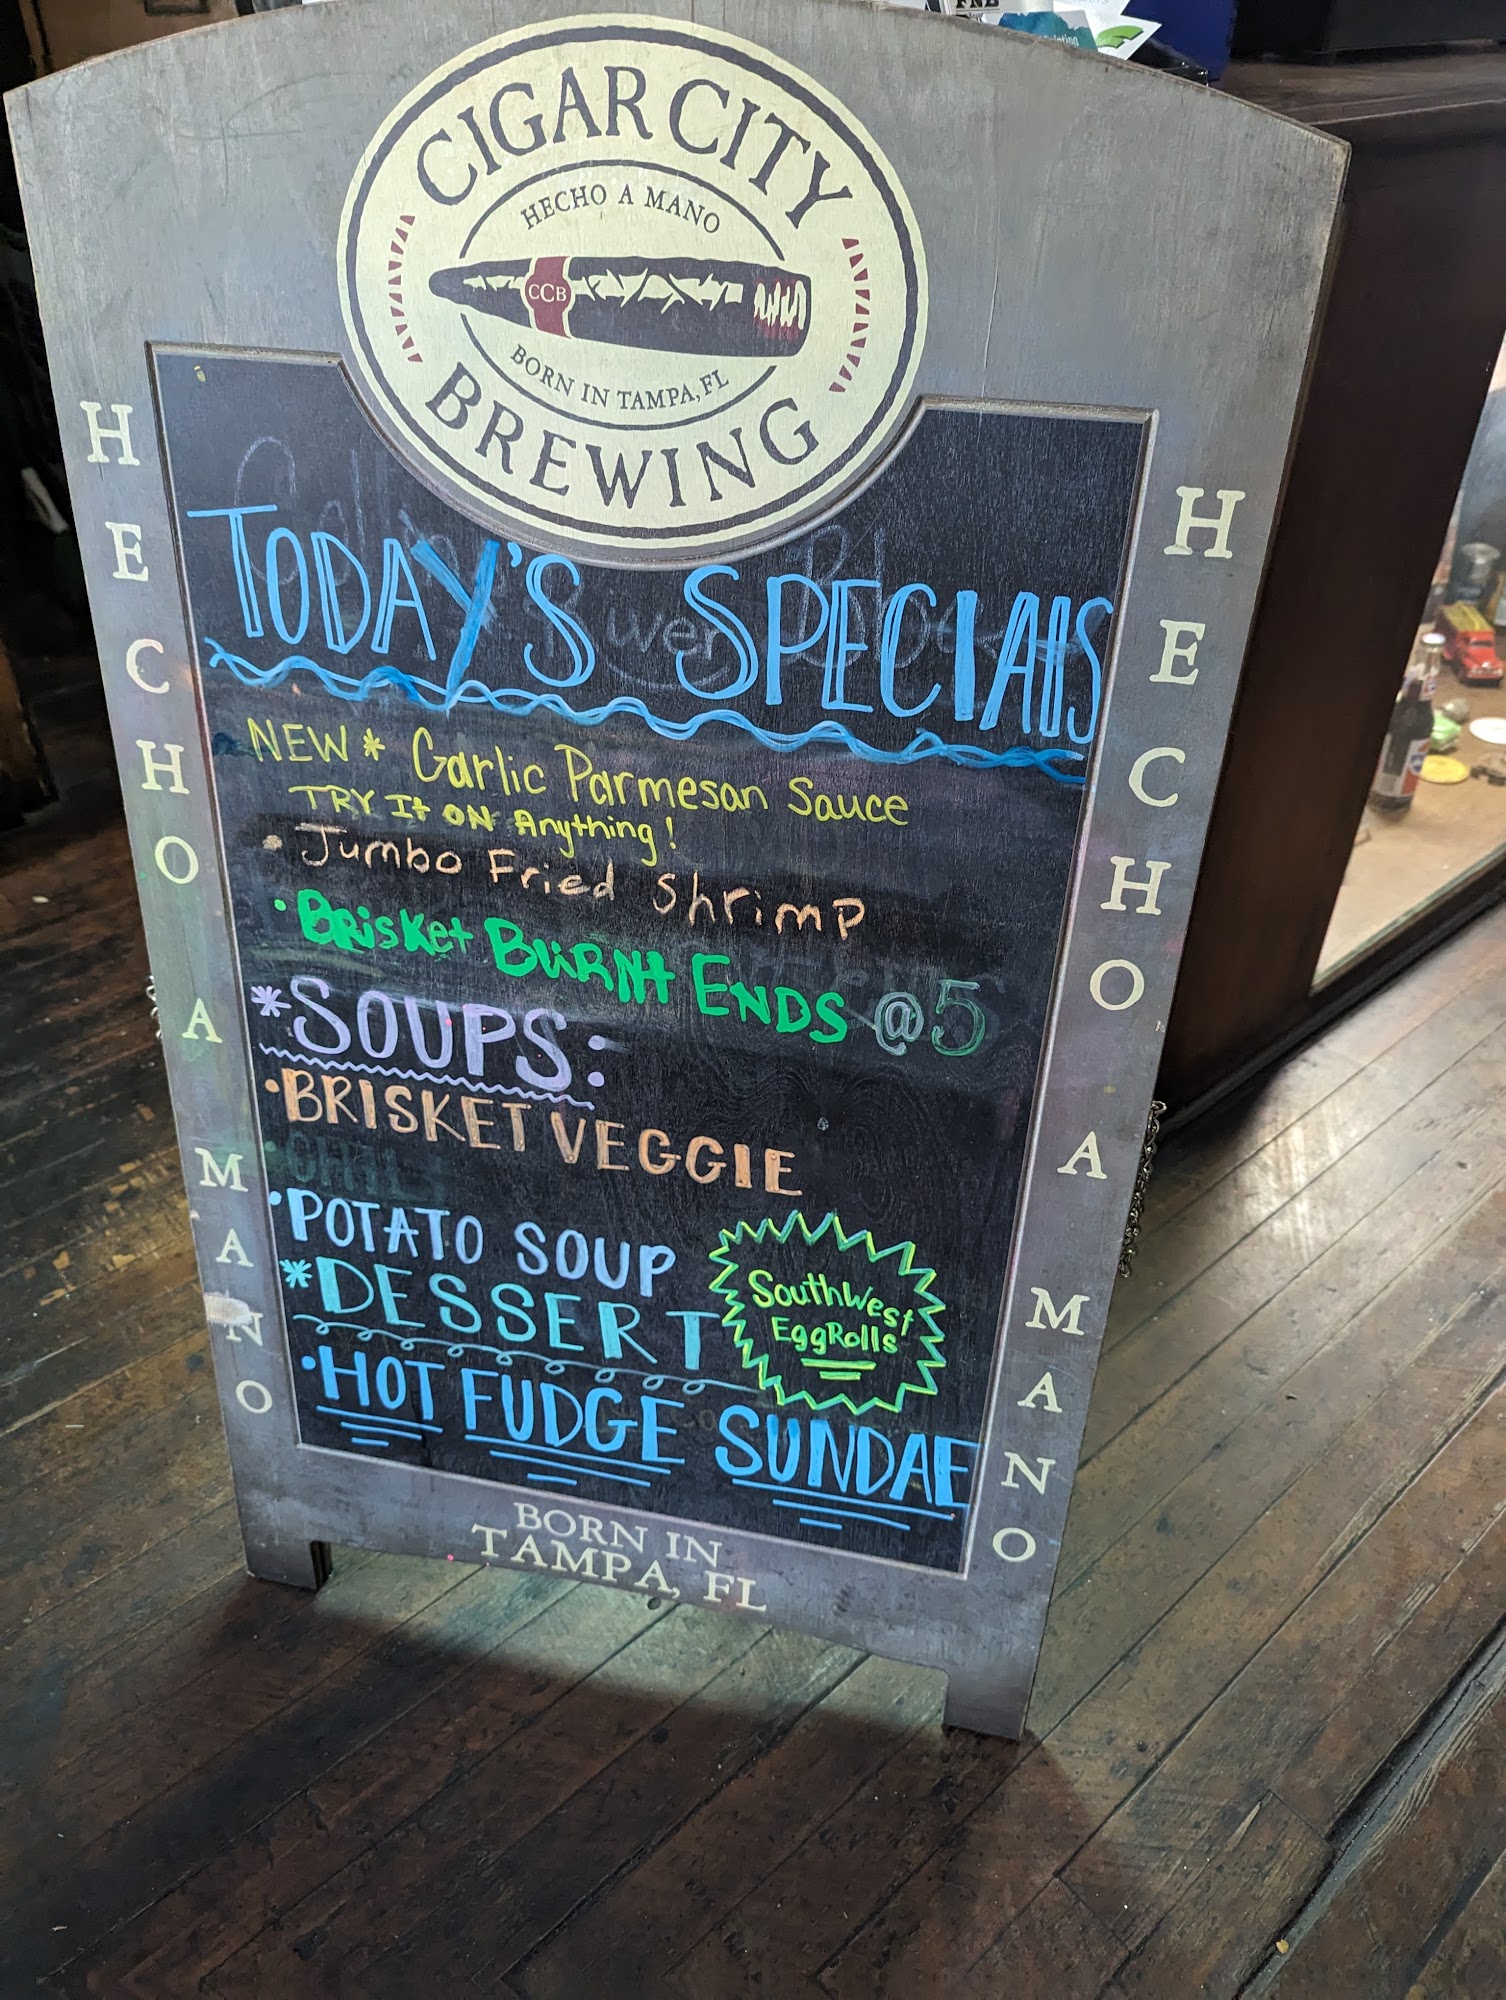 FNB
CIGAR CITY
HECHO A MANO
CCB
BORN IN TAMPA, FL
BREWING
TODAY'S SPECIAlS
NEW * Garlic Parmesan Sauce
TRY It ON Anything!
• Jumbo Fried Shrimp
• BRisKet BURNt ENDS @5
*SOUPS:
• BRISKET VEGGIE
CHILI
• POTATO SOUP
*DESSERT
SouthWest
EggRolls
• HOT FUDGE SUNDAE
HECHO A MANO
HECHO A MANO
BORN IN
TAMPA, FL